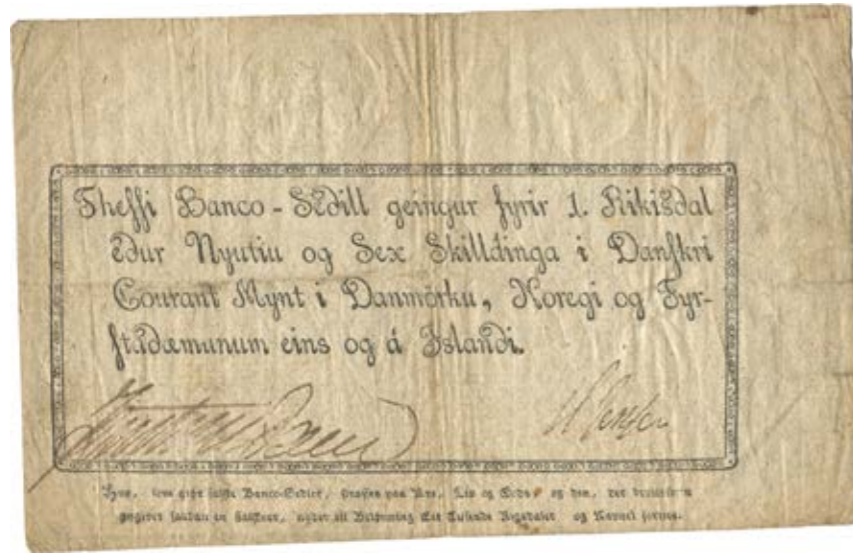 Thessi Banco-Sedill geingur fyrir 1. Rikisdal
edur Nyutiu og Sex Skilldinga i Danskri
Courant Mynt i Danmörku, Noregi og Fyr-
stadæmunum eins og á Islandi.
Hvo, som giør falske Banco-Sedler, straffes paa Ære, Liv og Gods, og den, der beviisligen
angiver saadan en Falskner, nyder til Belønning Eet Tusende Rigsdaler og Navnet forties.